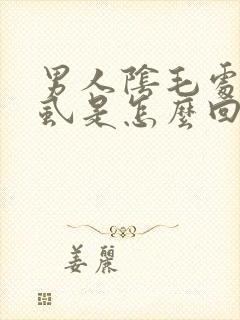 男人陰毛處
虱是怎麼回
姜麗